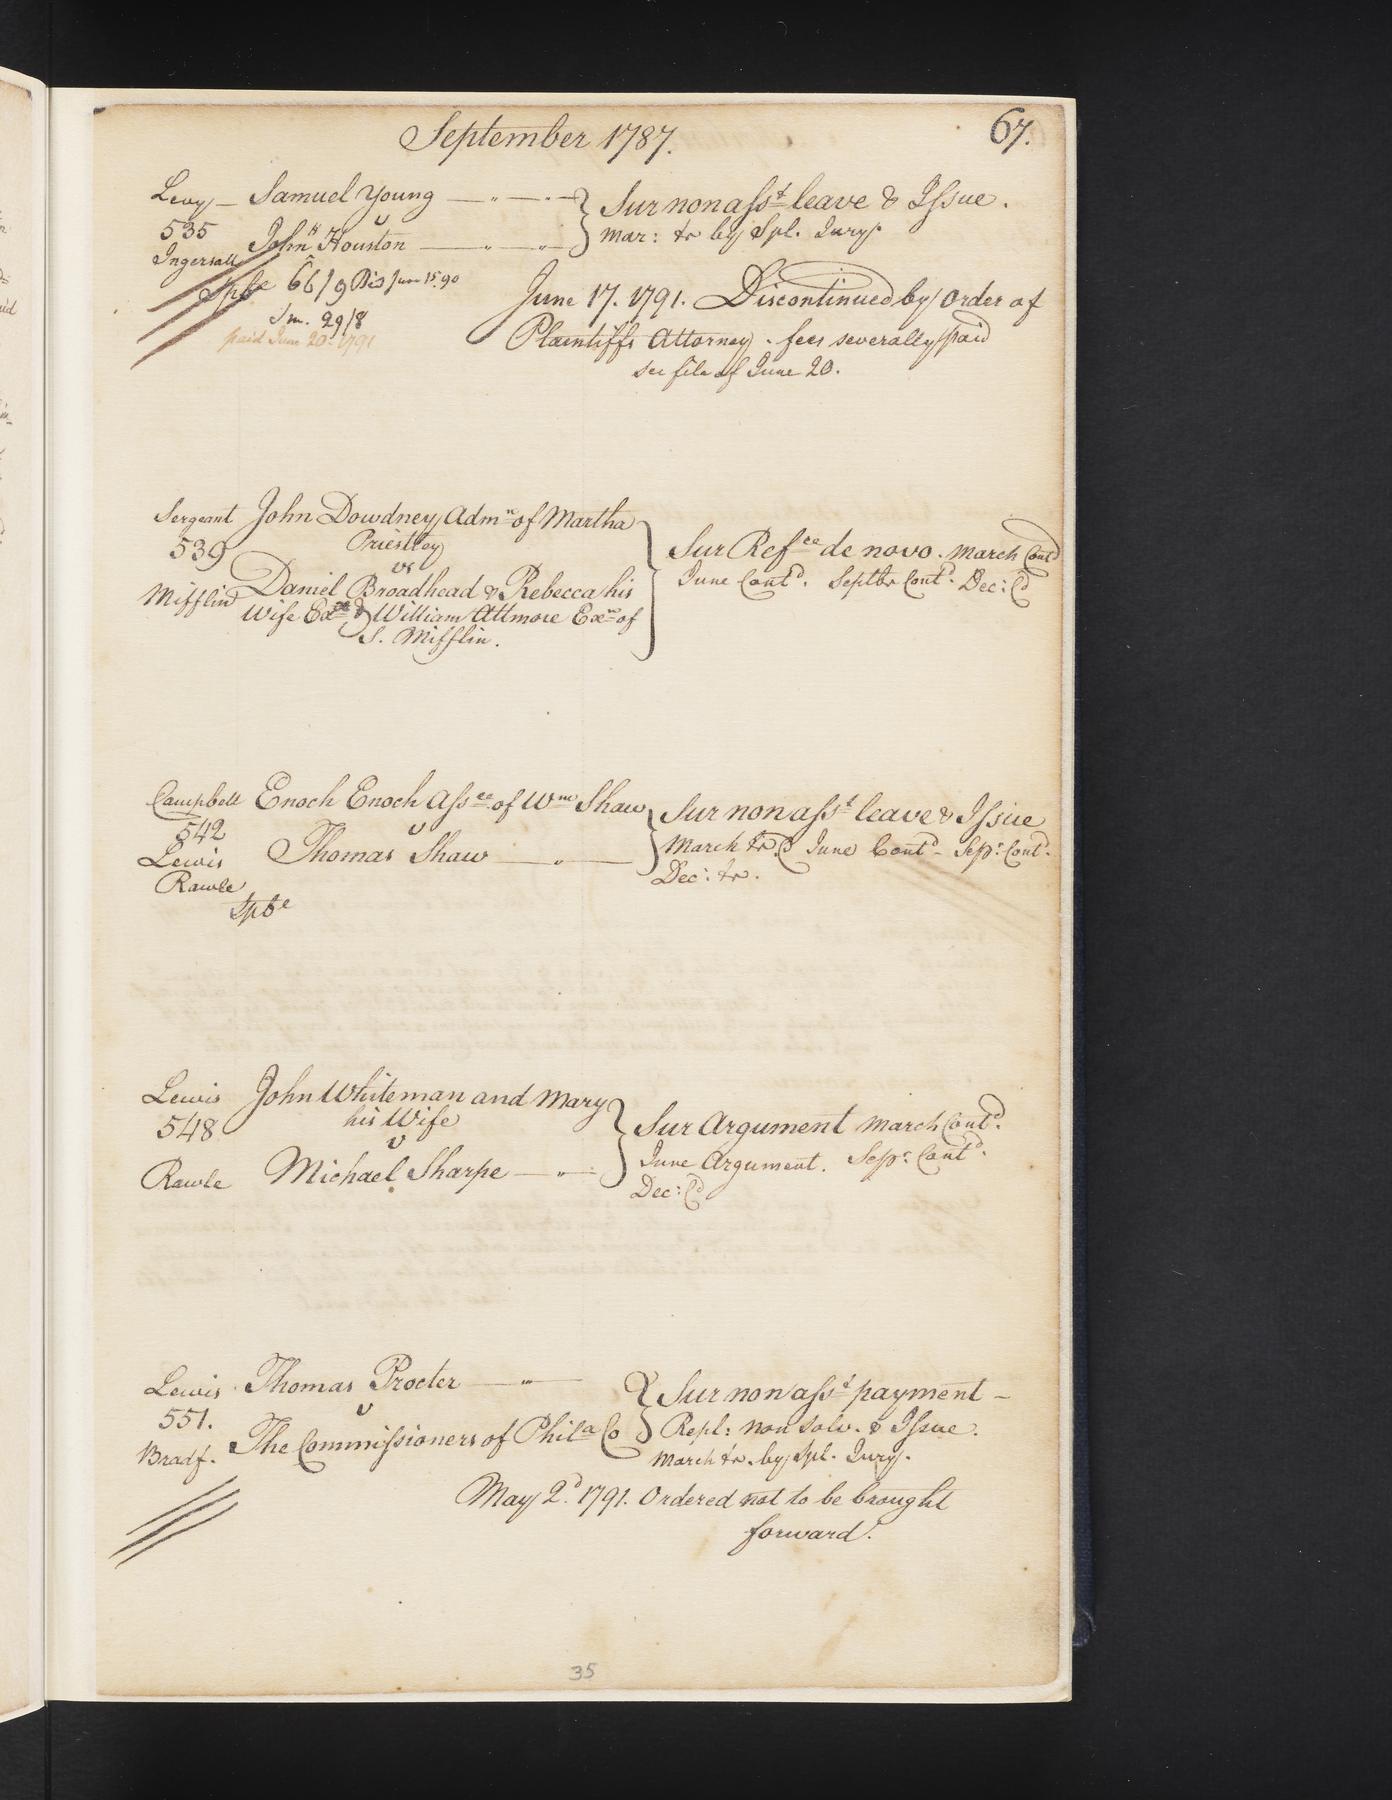 September 1787.
67.
Levy — Samuel Young — " — " —
v
535
John H Houston — " — " —
Ingersall
Sur non asst leave & Issue.
Mar: tr by Spl. Jury.
Spbe 66/9 Dis June 15. 90
Jm. 29/8
paid June 20. 1791
June 17. 1791. Discontinued by Order of
Plaintiffs Attorney. fees severally paid
see file of June 20.
Sergeant John Dowdney Admr of Martha
Priestley
539
vs
Mifflin Daniel Broadhead & Rebecca his
Wife Exx & William Attmore Exr of
S. Mifflin.
Sur Refce de novo. March Contd
June Contd. Septbr Contd. Dec: Cd
Campbell Enoch Enoch Assee of Wm Shaw
542
v
Lewis Thomas Shaw — " —
Rawle
Spbe
Sur non asst leave & Issue
March tr. Cd June Contd - Sepr Contd.
Dec: tr.
Lewis John Whiteman and Mary
his Wife
548
v
Rawle Michael Sharpe — " —
Sur Argument March Contd.
June Argument. Sepr Contd.
Dec: Cd
Lewis Thomas Procter — " —
551.
v
Bradf. The Commissioners of Phila Co
Sur non asst payment —
Repl: non solv. & Issue.
March tr. by Spl. Jury.
May 2d. 1791. Ordered not to be brought
forward.
35